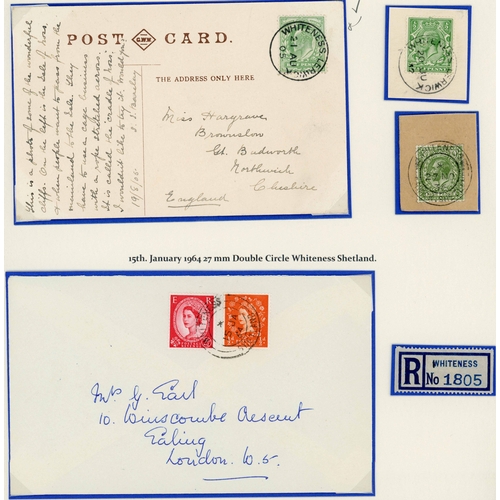 POST CARD.
G.W.W
THE ADDRESS ONLY HERE.
This is a photo of some of the wonderful
cliffs. On the left is the Isle of Noss,
& when people want to pass from the
mainland to the Isle they
have to use a cage business
with a rope stretched across.
It is called the cradle of Noss.
I wouldn't like to try it. Would you?
19/8/05
Miss Hargrave
Brownslow
Gt. Budworth
Northwich
Cheshire
England
WHITENESS LERWICK
21 AU
05
WICK
WHITENESS
15th. January 1964 27 mm Double Circle Whiteness Shetland.
E R
Mrs G. Earl
10. Winscombe Crescent
Ealing
London. W.5.
R
WHITENESS
No 1805